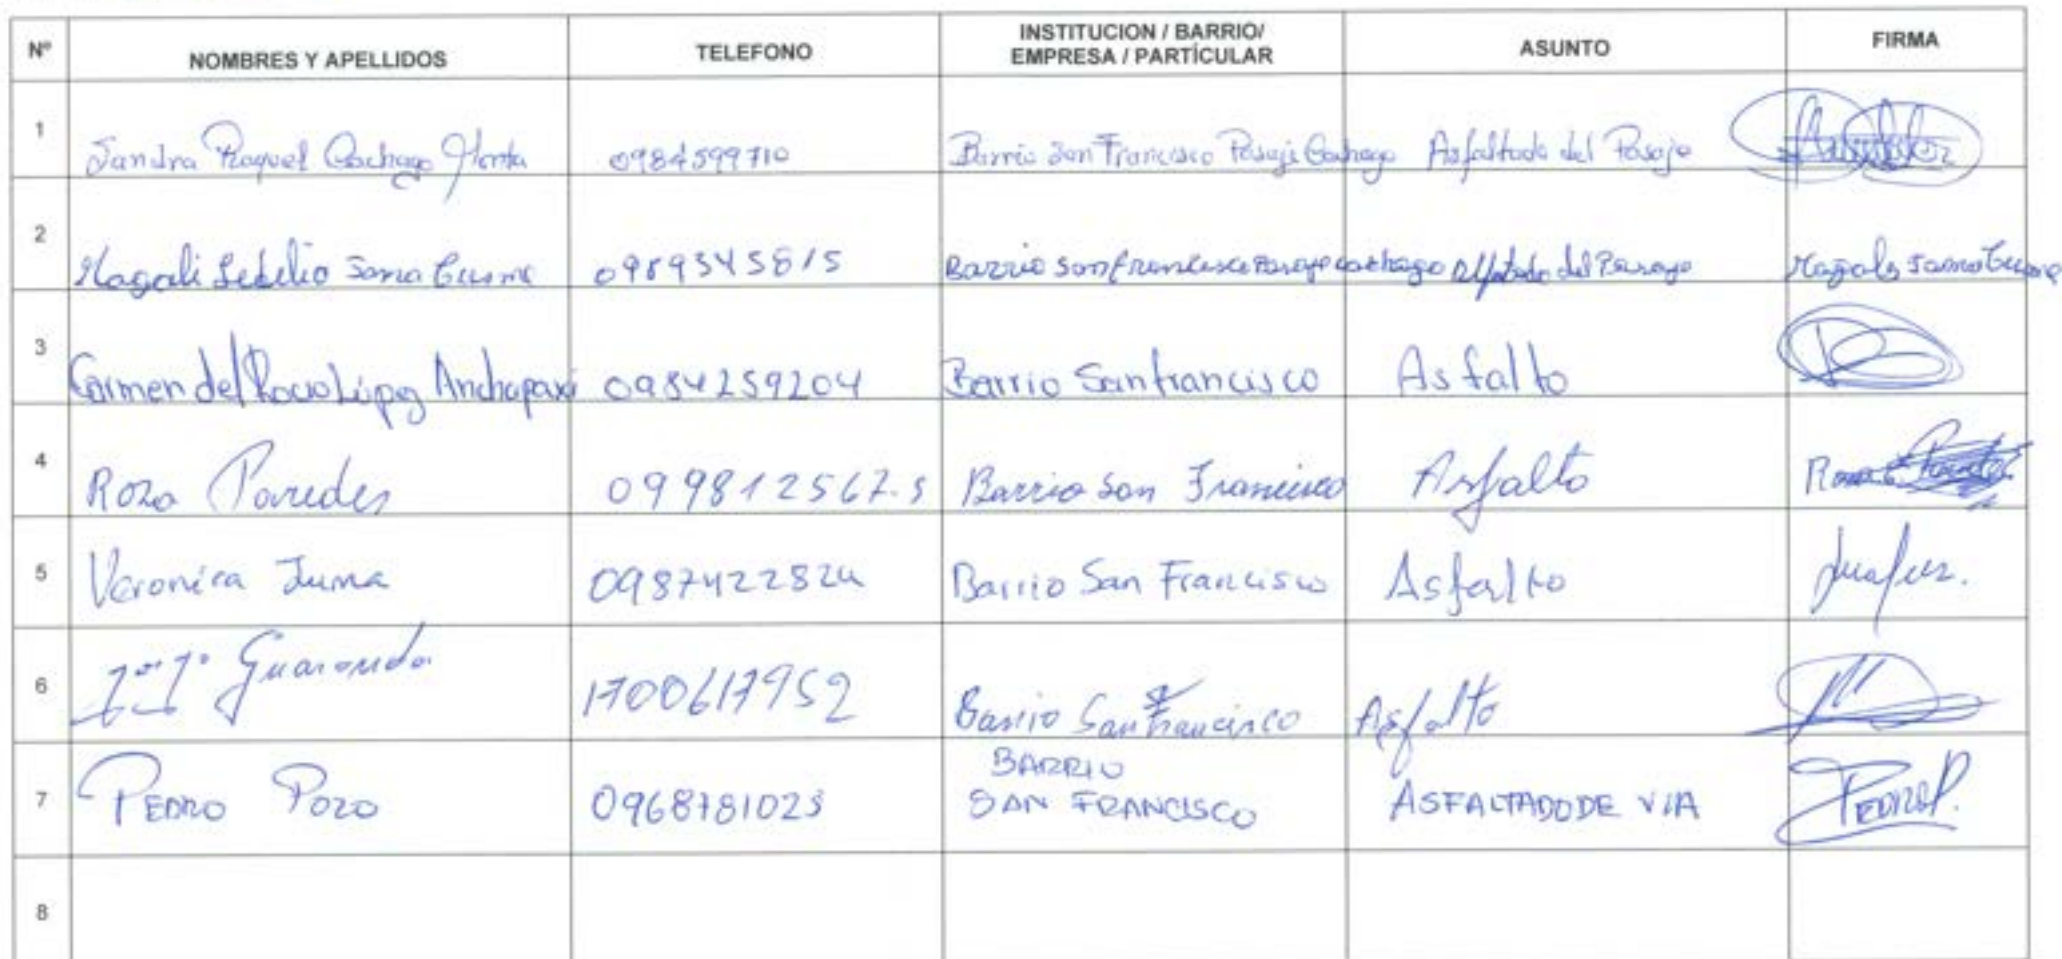 Nº NOMBRES Y APELLIDOS TELEFONO INSTITUCION / BARRIO/ EMPRESA / PARTÍCULAR ASUNTO FIRMA
1 Sandra Raquel Cachago 0984599710 Barrio San Francisco Pasaje Cachago Asfaltado del Pasaje
2 Magali 0989545815 Barrio San francisco Pasaje cachago del Pasaje Magaly
3 Carmen del Rocio López Anchapaxi 0984259204 Barrio Sanfrancisco Asfalto
4 Rosa Paredes 099812567.5 Barrio San Francisco Asfalto Rosa
5 Veronica Juma 0987422824 Barrio San Francisco Asfalto
6 Guaranda 1700617952 Barrio San Francisco Asfalto
7 PEDRO POZO 0968781023 BARRIO SAN FRANCISCO ASFALTADO DE VIA PEDRO P.
8